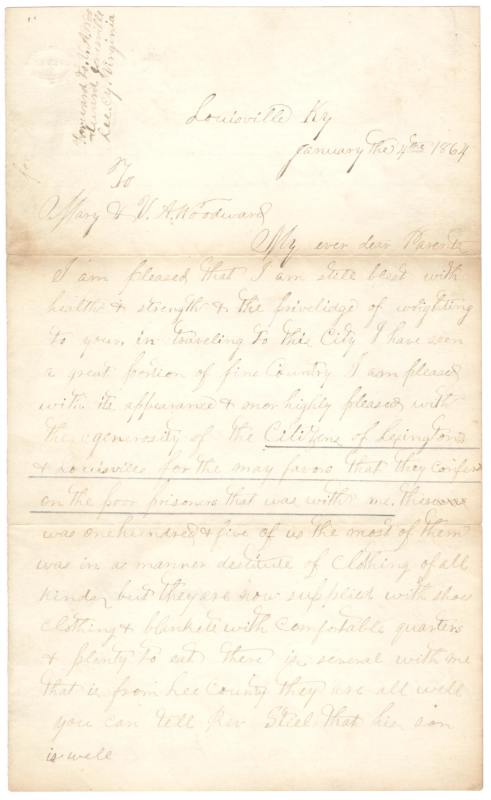 Forward to V. A. Wood
ward Jonesville
Lee Cy. Virginia
Louisville Ky
January the 4th 1864
To
Mary & V. A. Woodward
My ever dear Parents
I am pleased that I am still blest with
health & strength & the privilidge of wrighting
to you, in traveling to this City I have seen
a great portion of fine Country I am pleased
with its appearance & mor highly pleased with
the generosity of the Citizens of Lexington
& Louisville for the may favors that they confer
on the poor prisoners that was with me, there
was onehundred & five of us the most of them
was in a manner destitute of clothing of all
kinds, but they are now supplied with shoes
clothing & blankets with comfotable quarters
& plenty to eat there is several with me
that is from Lee County they are all well
you can tell Rev Stiel that his son
is well